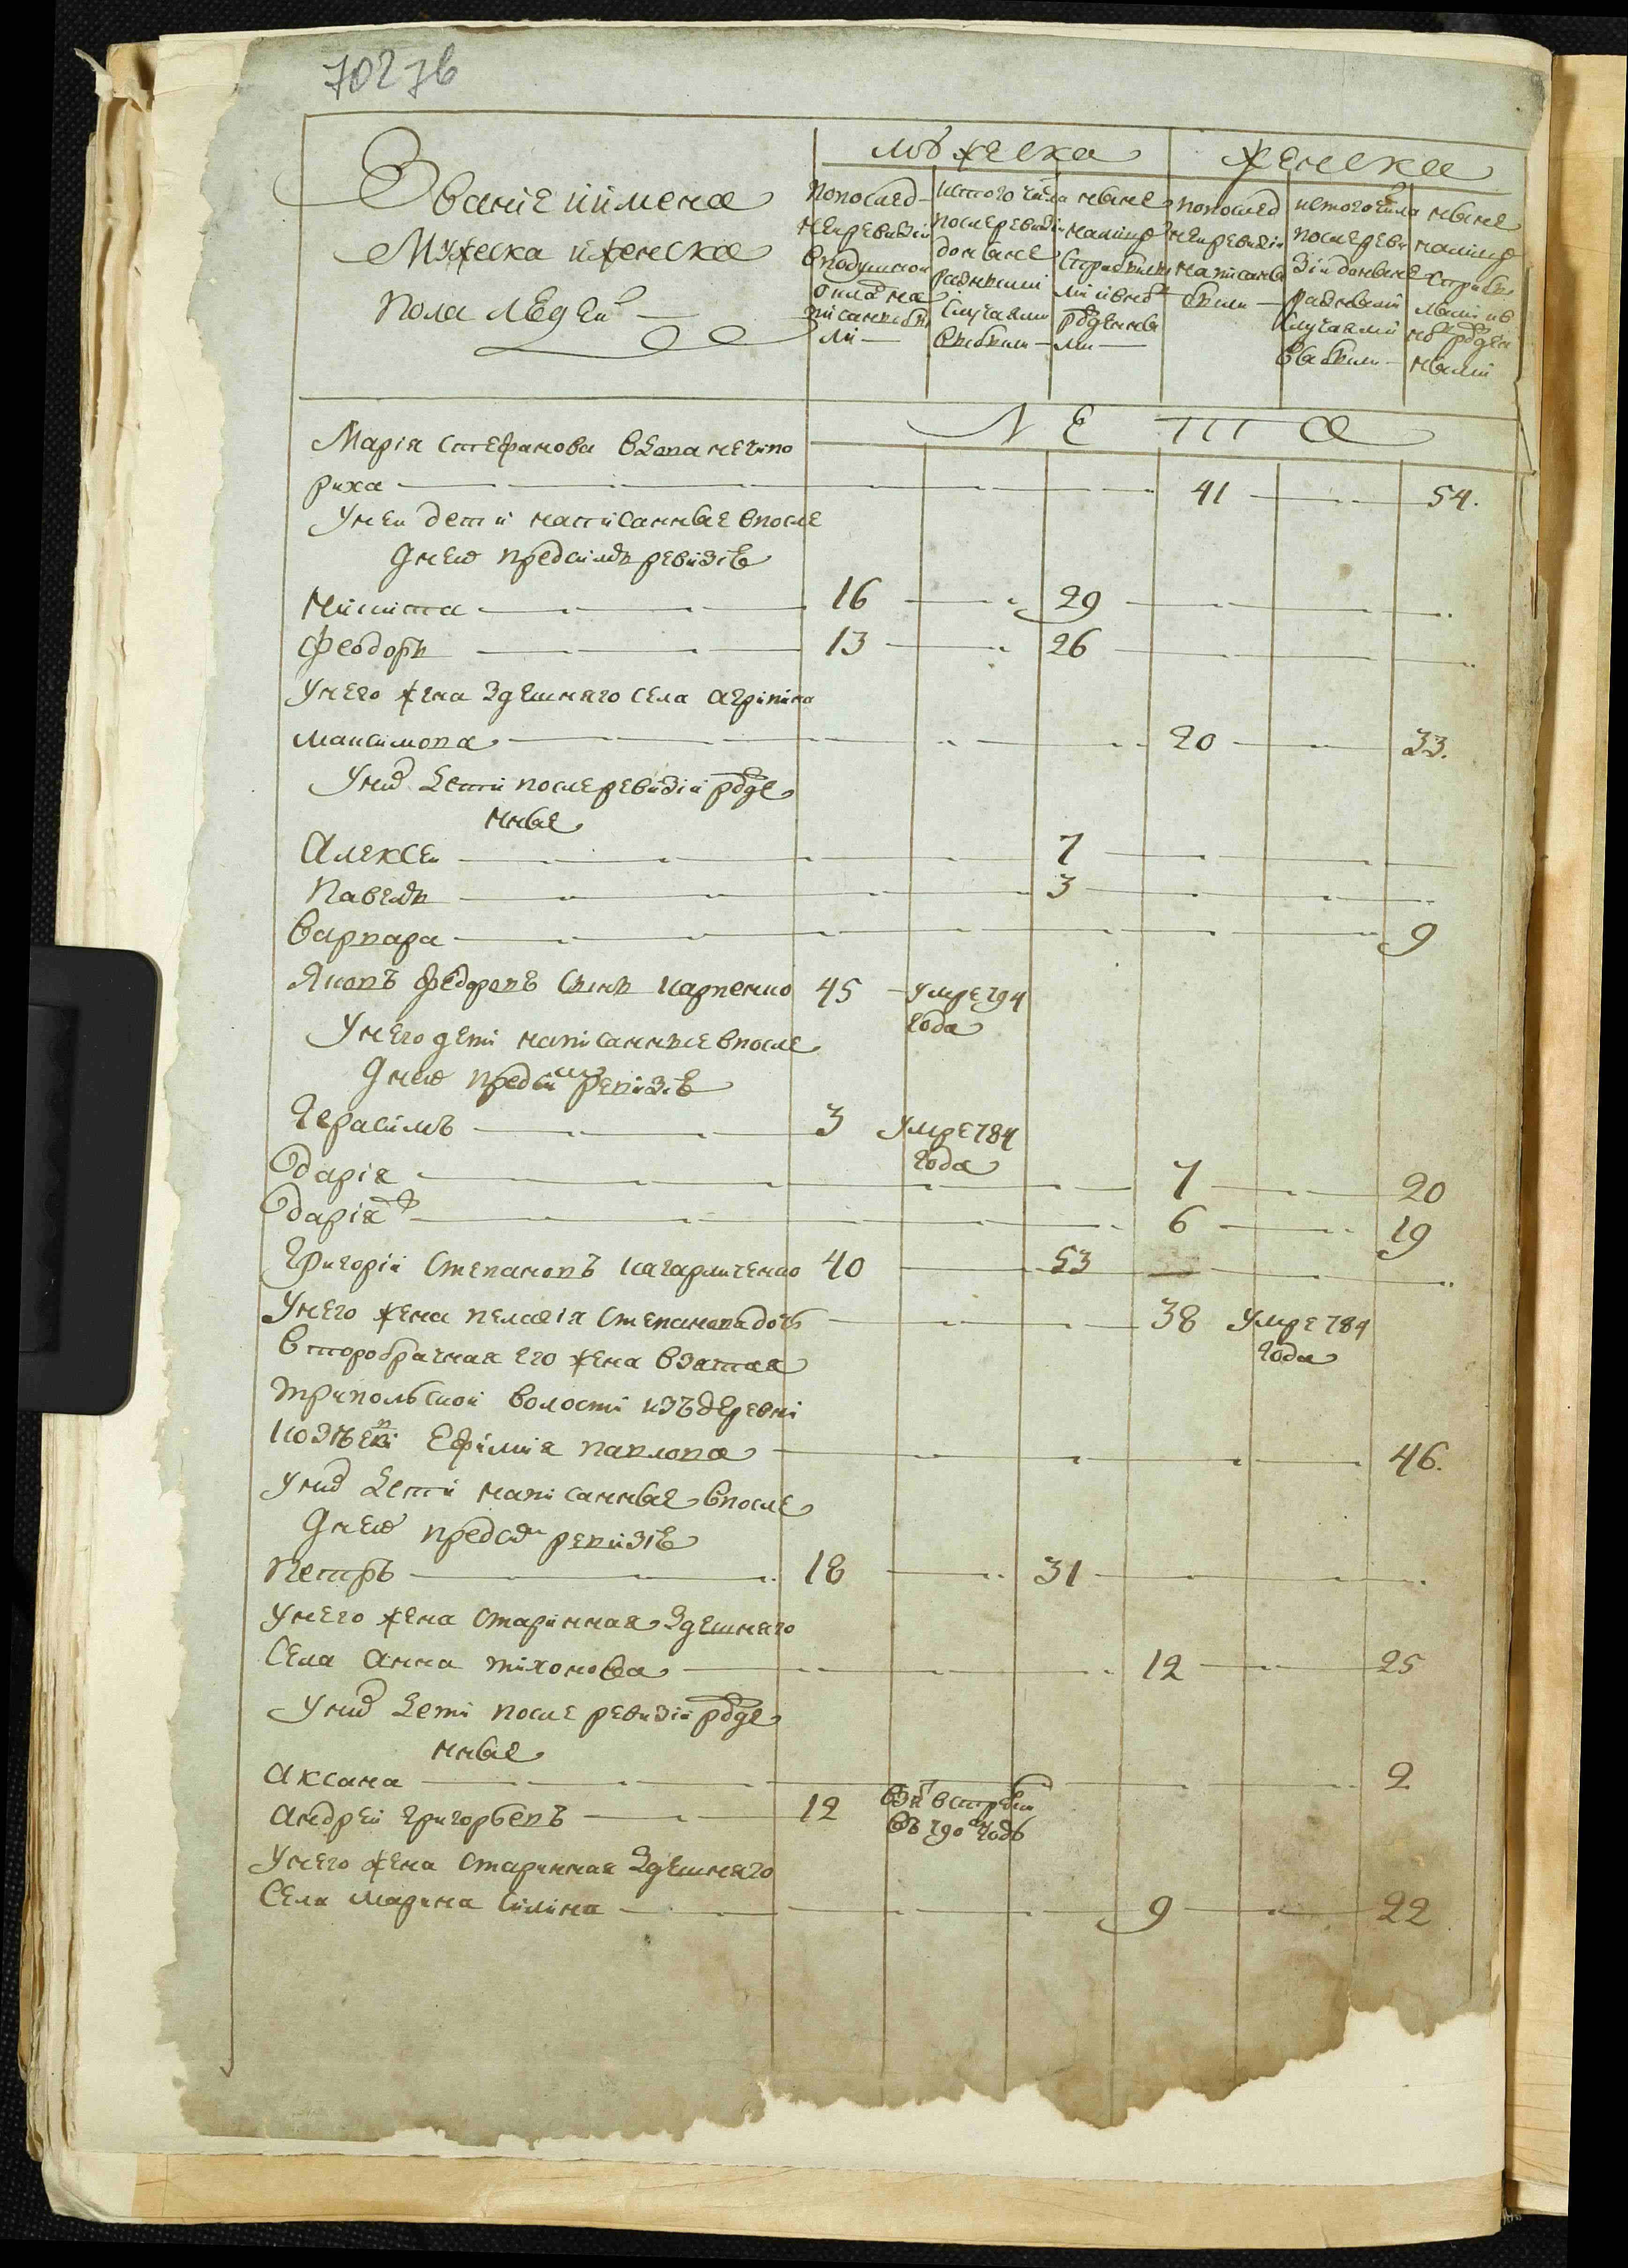 7027в
Званіе иимена
Мужеска иженска
пола людей
мужеска
женска
попослед
ней ревизіи
вподушной
окладъ на
писаннибы
ли
истого числа
после ревизіи
доныне
разныміи
случаями
выбыли
ныне
налицо
сприбылы
ми ивнов
рожденны
ми
попослед
ней ревизіи
написаны
были
истого числа
послереви
зіи доныне
разныміи
случаями
выбыли
ныне
налицо
сприбы
лыми ив
нов рожден
ными
лета
Марія Стефанова вдова нечіпо
риха 41 54.
Унеи дети написанные впосле
днею предсимъ ревизію
Микита 16 29
Феодоръ 13 26
Унего жена здешнего села Агрипина
Максимова 20 33.
Уних дети послеревизіи рожде
нные
Алексеи 7
Павелъ 3
Варвара 9
Яковъ Федоровъ сынъ Карпенко 45 Умре 794
года
Унего дети написанные впосле
днею предсим ревизію
Герасимъ 3 Умре 784
года
Дарія 7 20
Дарія 6 19
Григорій Степановъ Кагарличенко 40 53
Унего жена Пелагія Степанова дочь 38 Умре 784
года
Второбрачная его жена взятая
Трипольской волости изъ деревни
Ефимия Павлова 46.
Уних дети написанные впосле
днею предсим ревизію
Петръ 18 31
Унего жена старинная здешнего
села Анна Тихонова 12 25
Уних дети после ревизіи рожде
нные
Аксана 2
Андрей Григорьевъ 12
въ 790 годъ
Унего жена старинная здешнего
села Марина Силина 9 22